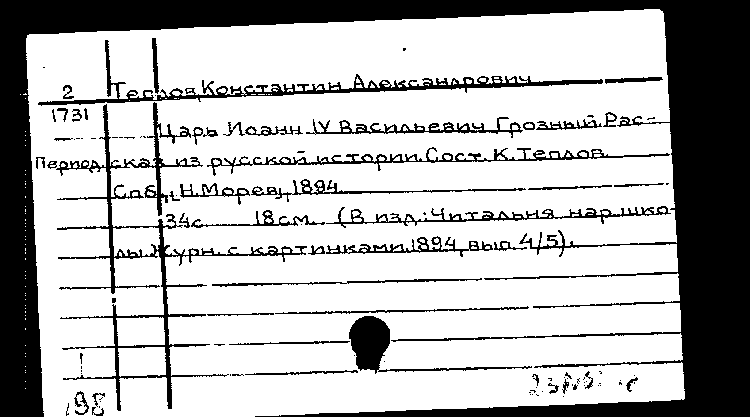 2 Теплов, Константин Александрович
1731
Царь Иоанн IV Васильевич Грозный. Рас-
Период. сказ из русской истории. Сост. К. Теплов.
Спб., Н. Морев, 1894.
34с. 18см. (В изд.: Читальня нар. шко-
лы. Журн. с картинками. 1894, вып. 4/5).
198